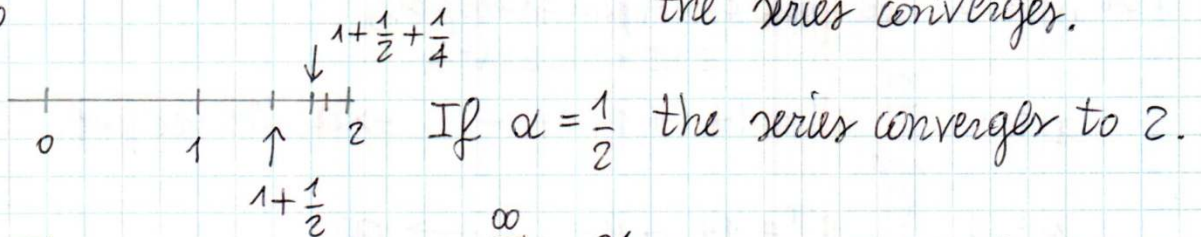 the series converges.
1+1/2+1/4
0 1 ↑ 2 If α = 1/2 the series converges to 2.
1+1/2
∞